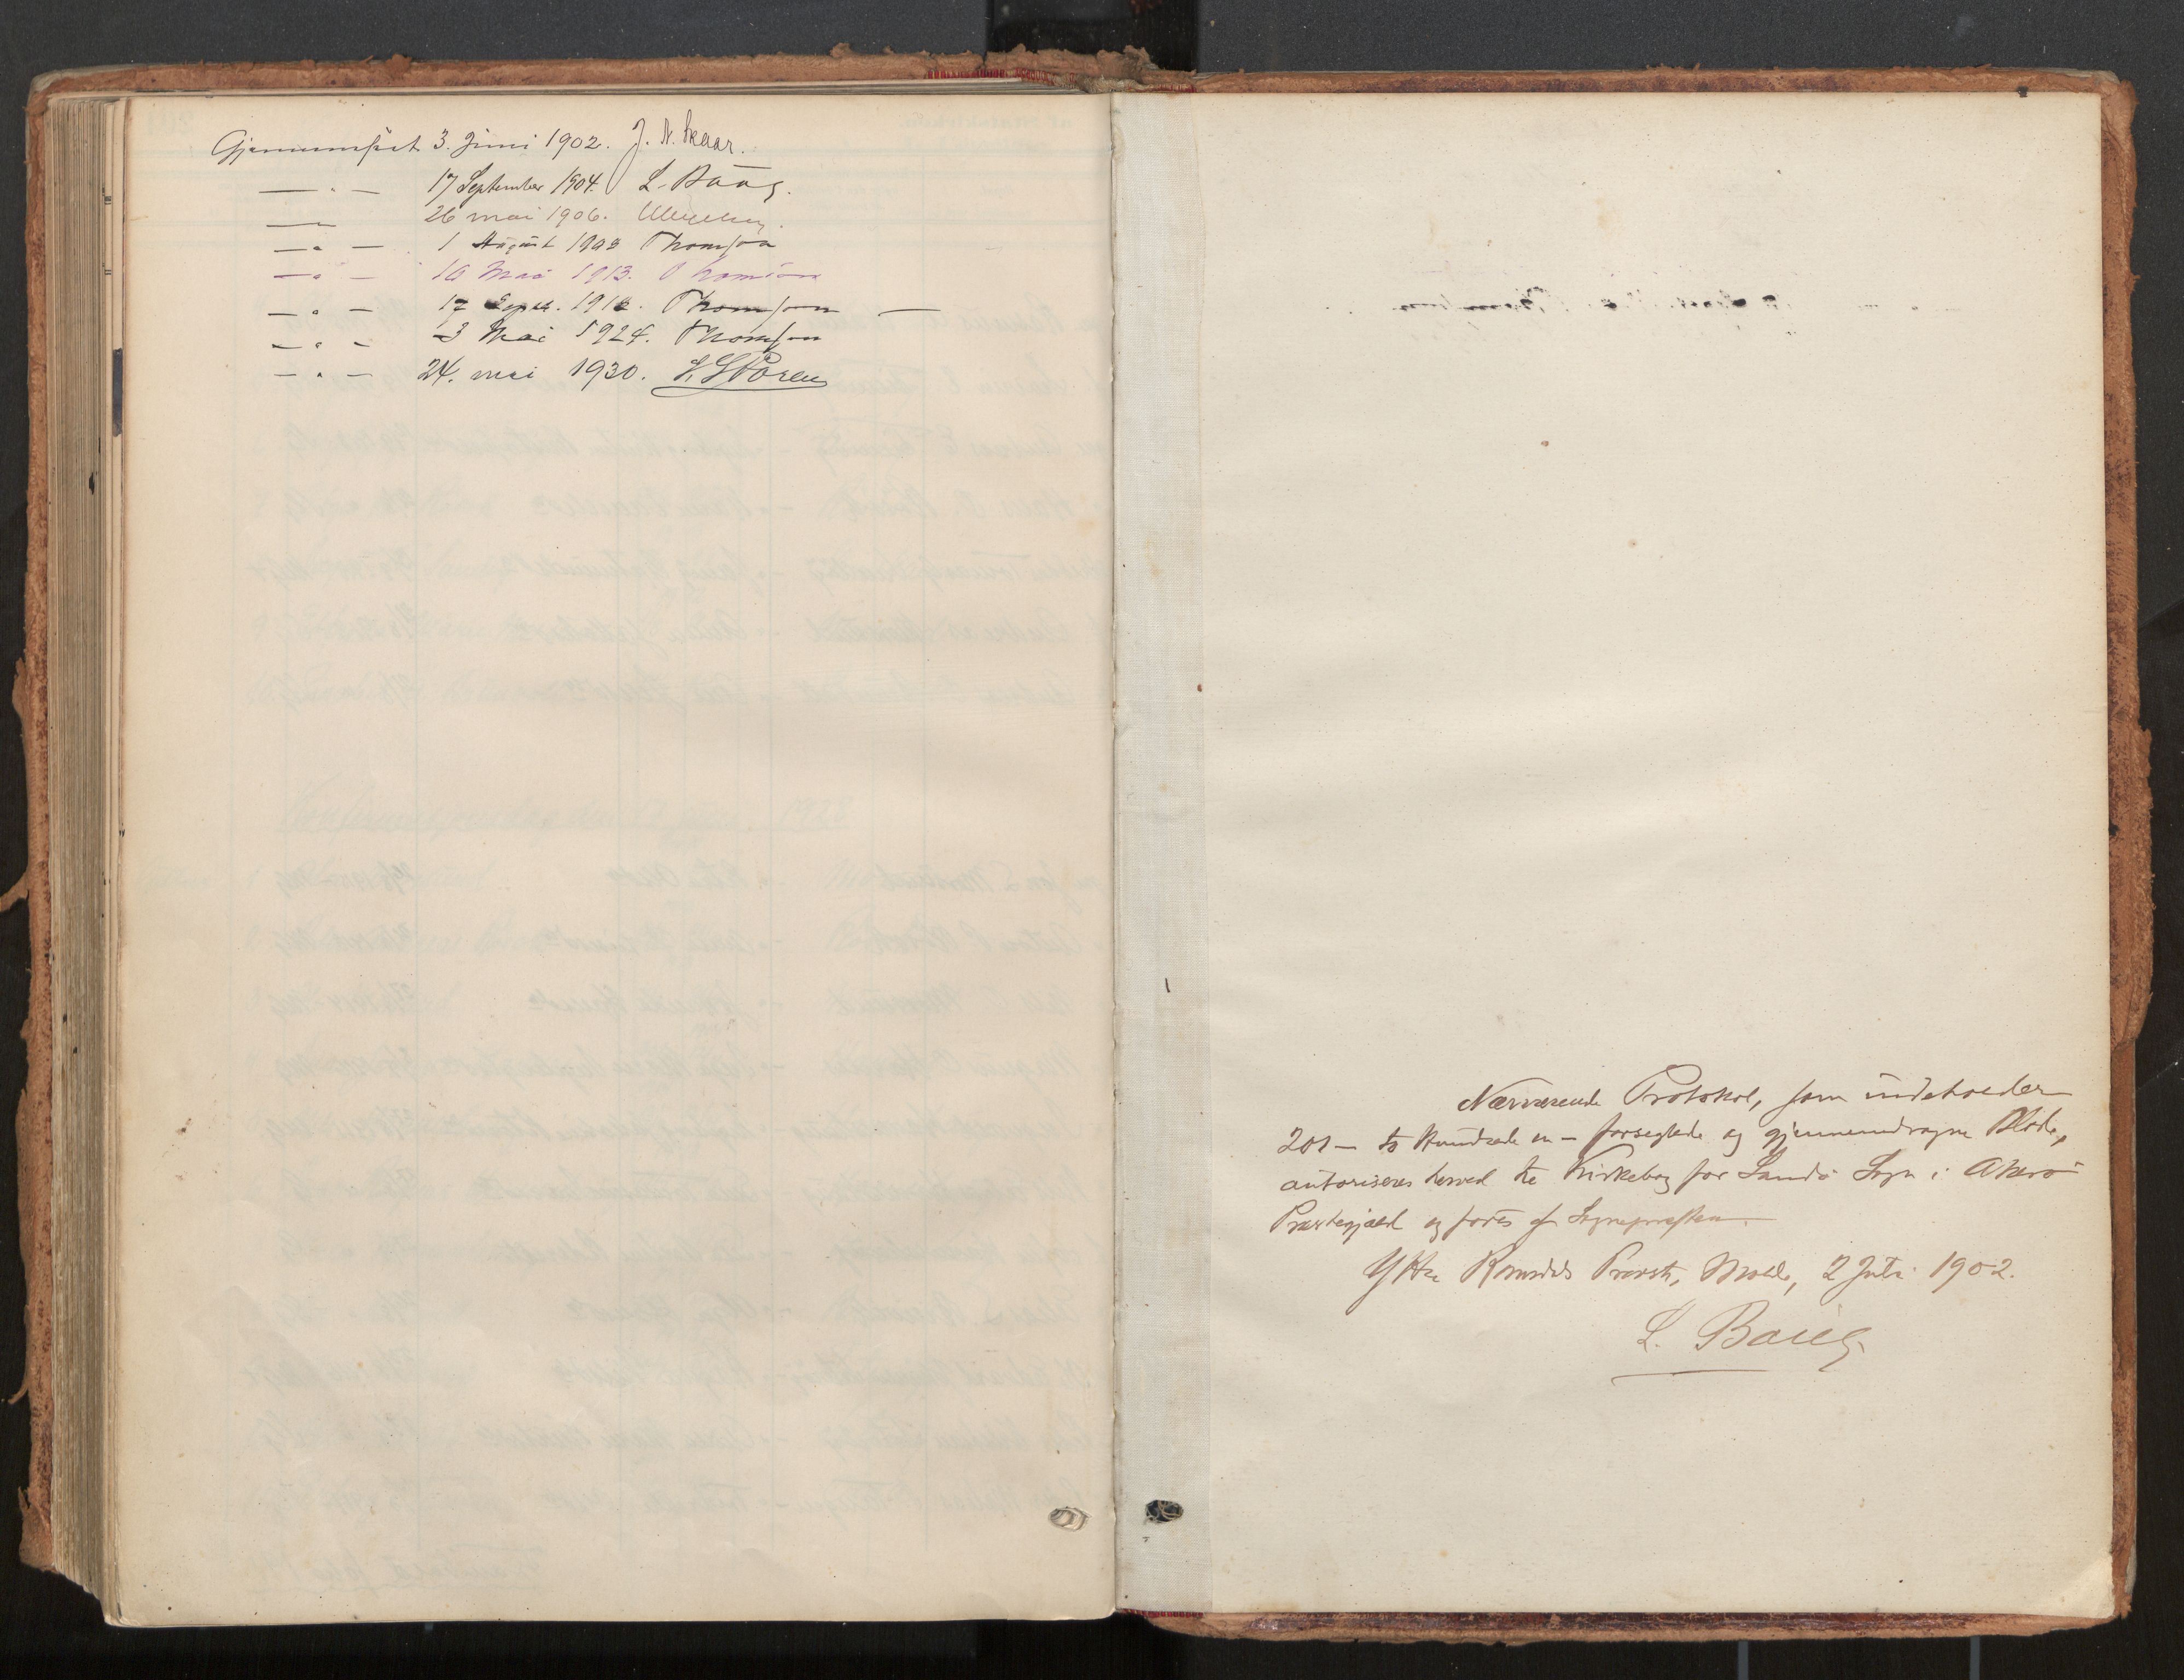 Gjennemseet 3. Juni 1902. J. N. Skaar.
— " — 17 September 1904. L. Baarg.
— " — 26 mai 1906.
— " — 1 August 1908 Thomson
— " — 10 Mai 1913. Thomson
— " — 17 Sept. 1918. Thomson —
— " — 3 Mai 1924. Thomson
— " — 24. mai 1930. H. Støren
Nærværende Protokol, som indeholder
201 — to Hundrede en — forseglede og gjennemdragne Blade,
autoriseres herved til Kirkebog for Sandø Sogn i Akerø
Præstegjæld og føres af Sognepræsten.
Ytre Romsdals Provsti, Molde, 2 Juli 1902.